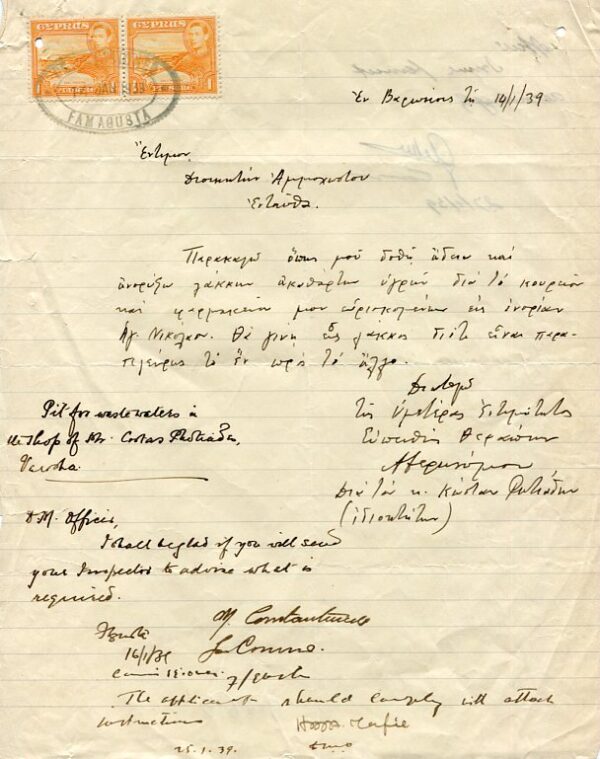 CYPRUS CYPRUS
1 1
FAMAGUSTA
Ἐν Βαρωσίοις τῇ 14/1/39
Ἔντιμον
Διοικητὴν Ἀμμοχώστου
Ἐνταῦθα.
Παρακαλῶ ὅπως μοῦ δοθῇ ἄδεια καὶ
ἀνορύξω λάκκον ἀκαθάρτων ὑγρῶν διὰ τὸ κουρεῖον
καὶ φαρμακεῖον μου εὑρισκομένων εἰς ἐνορίαν
Ἁγ. Νικολάου. Θὰ γίνῃ εἷς λάκκος διότι εἶναι παρα-
πλεύρως τὸ ἓν πρὸς τὸ ἄλλο.
Διατελῶ
τῆς Ὑμετέρας Ἐντιμότητος
Εὐπειθὴς Θεράπων
Διὰ τὸν κ. Κώσταν Φωτιάδην
(ἰδιοκτήτην)
Pit for wastewaters in
the shop of Mr. Costas Photiades,
Varosha.
D.M. Officer,
I shall be glad if you will send
your Inspector to advise what is
required.
M. Constantinides
for Commr.
16/1/39
Commissioner
The applicant should comply with attach
instructions
25.1.39.